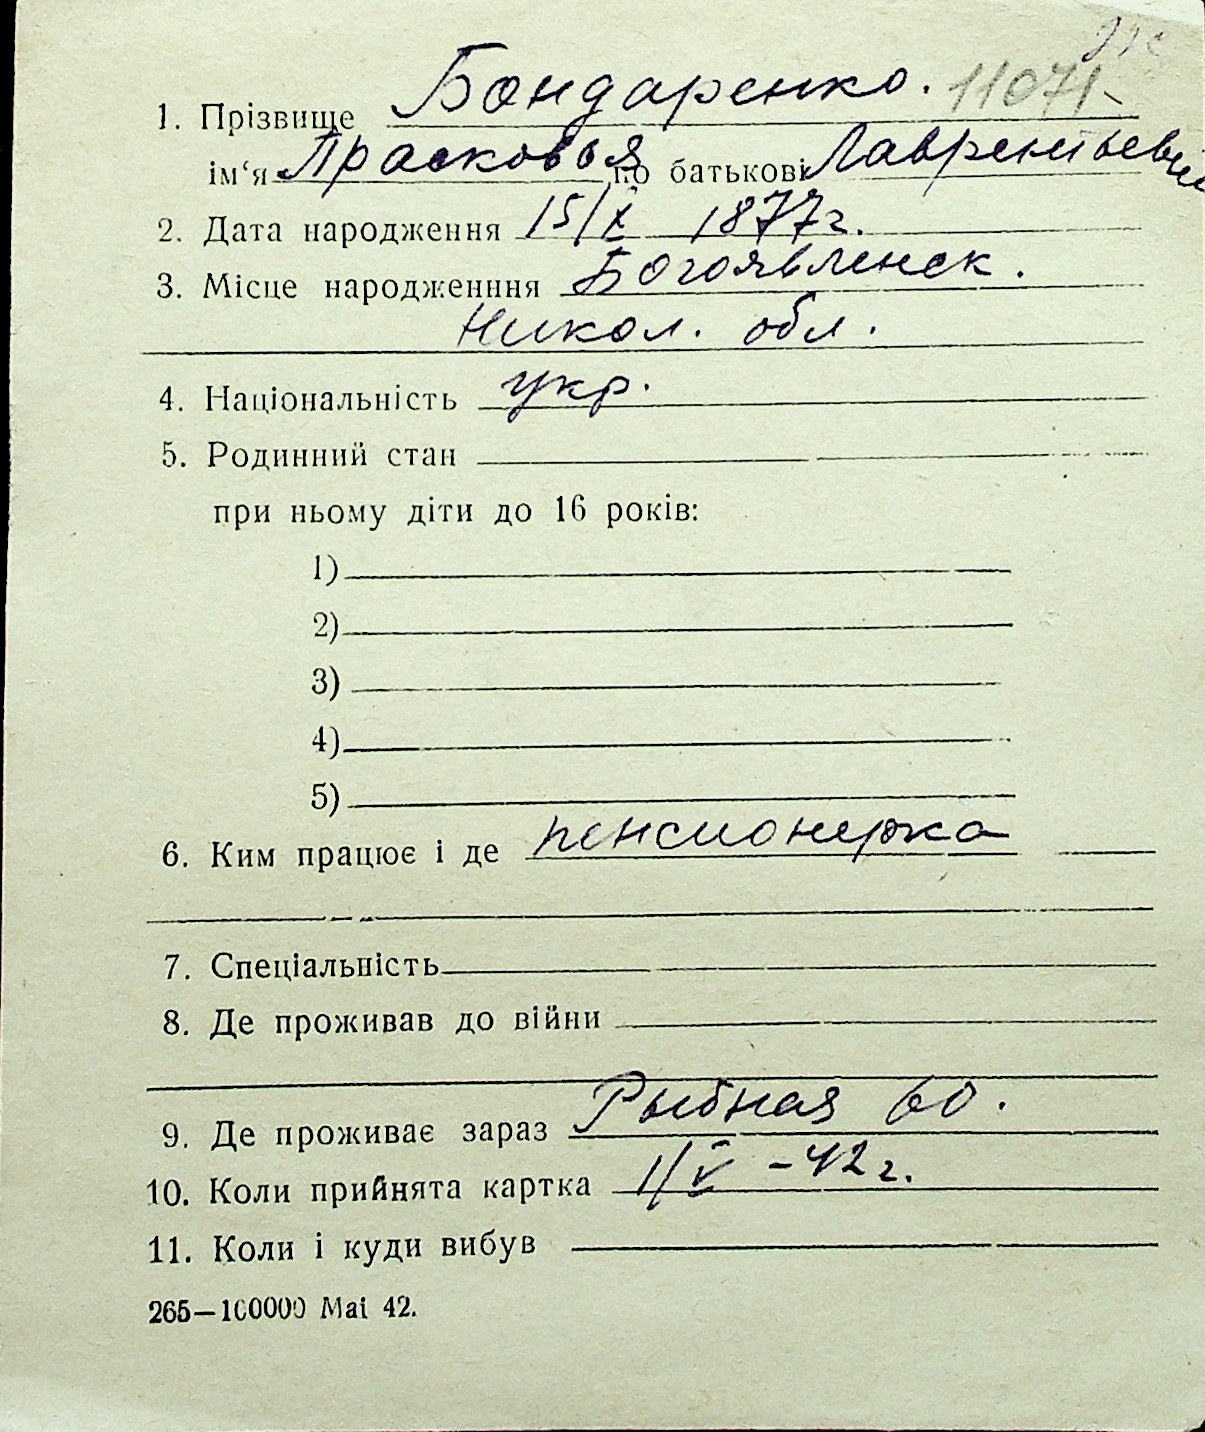 1. Прізвище Бондаренко. 11071
ім‘я Прасковья по батькові Лаврентьевна
2. Дата народження 15/X 1877г.
3. Місце народженння Богоявленск.
Никол. обл.
4. Національність укр.
5. Родинний стан
при ньому діти до 16 років:
1)
2)
3)
4)
5)
6. Ким працює і де пенсионерка
7. Спеціальність
8. Де проживав до війни
9. Де проживає зараз Рыбная 60.
10. Коли прийнята картка 1/V -42г.
11. Коли і куди вибув
265—100000 Mai 42.